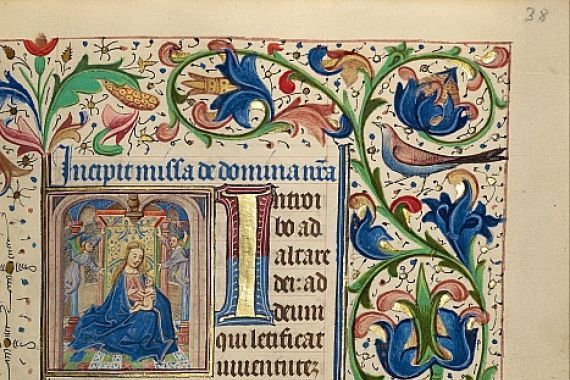 38
Incipit missa de domina nr̃a
Introi
bo ad
altare
dei: ad
deum
qui letificat
iuuentutez